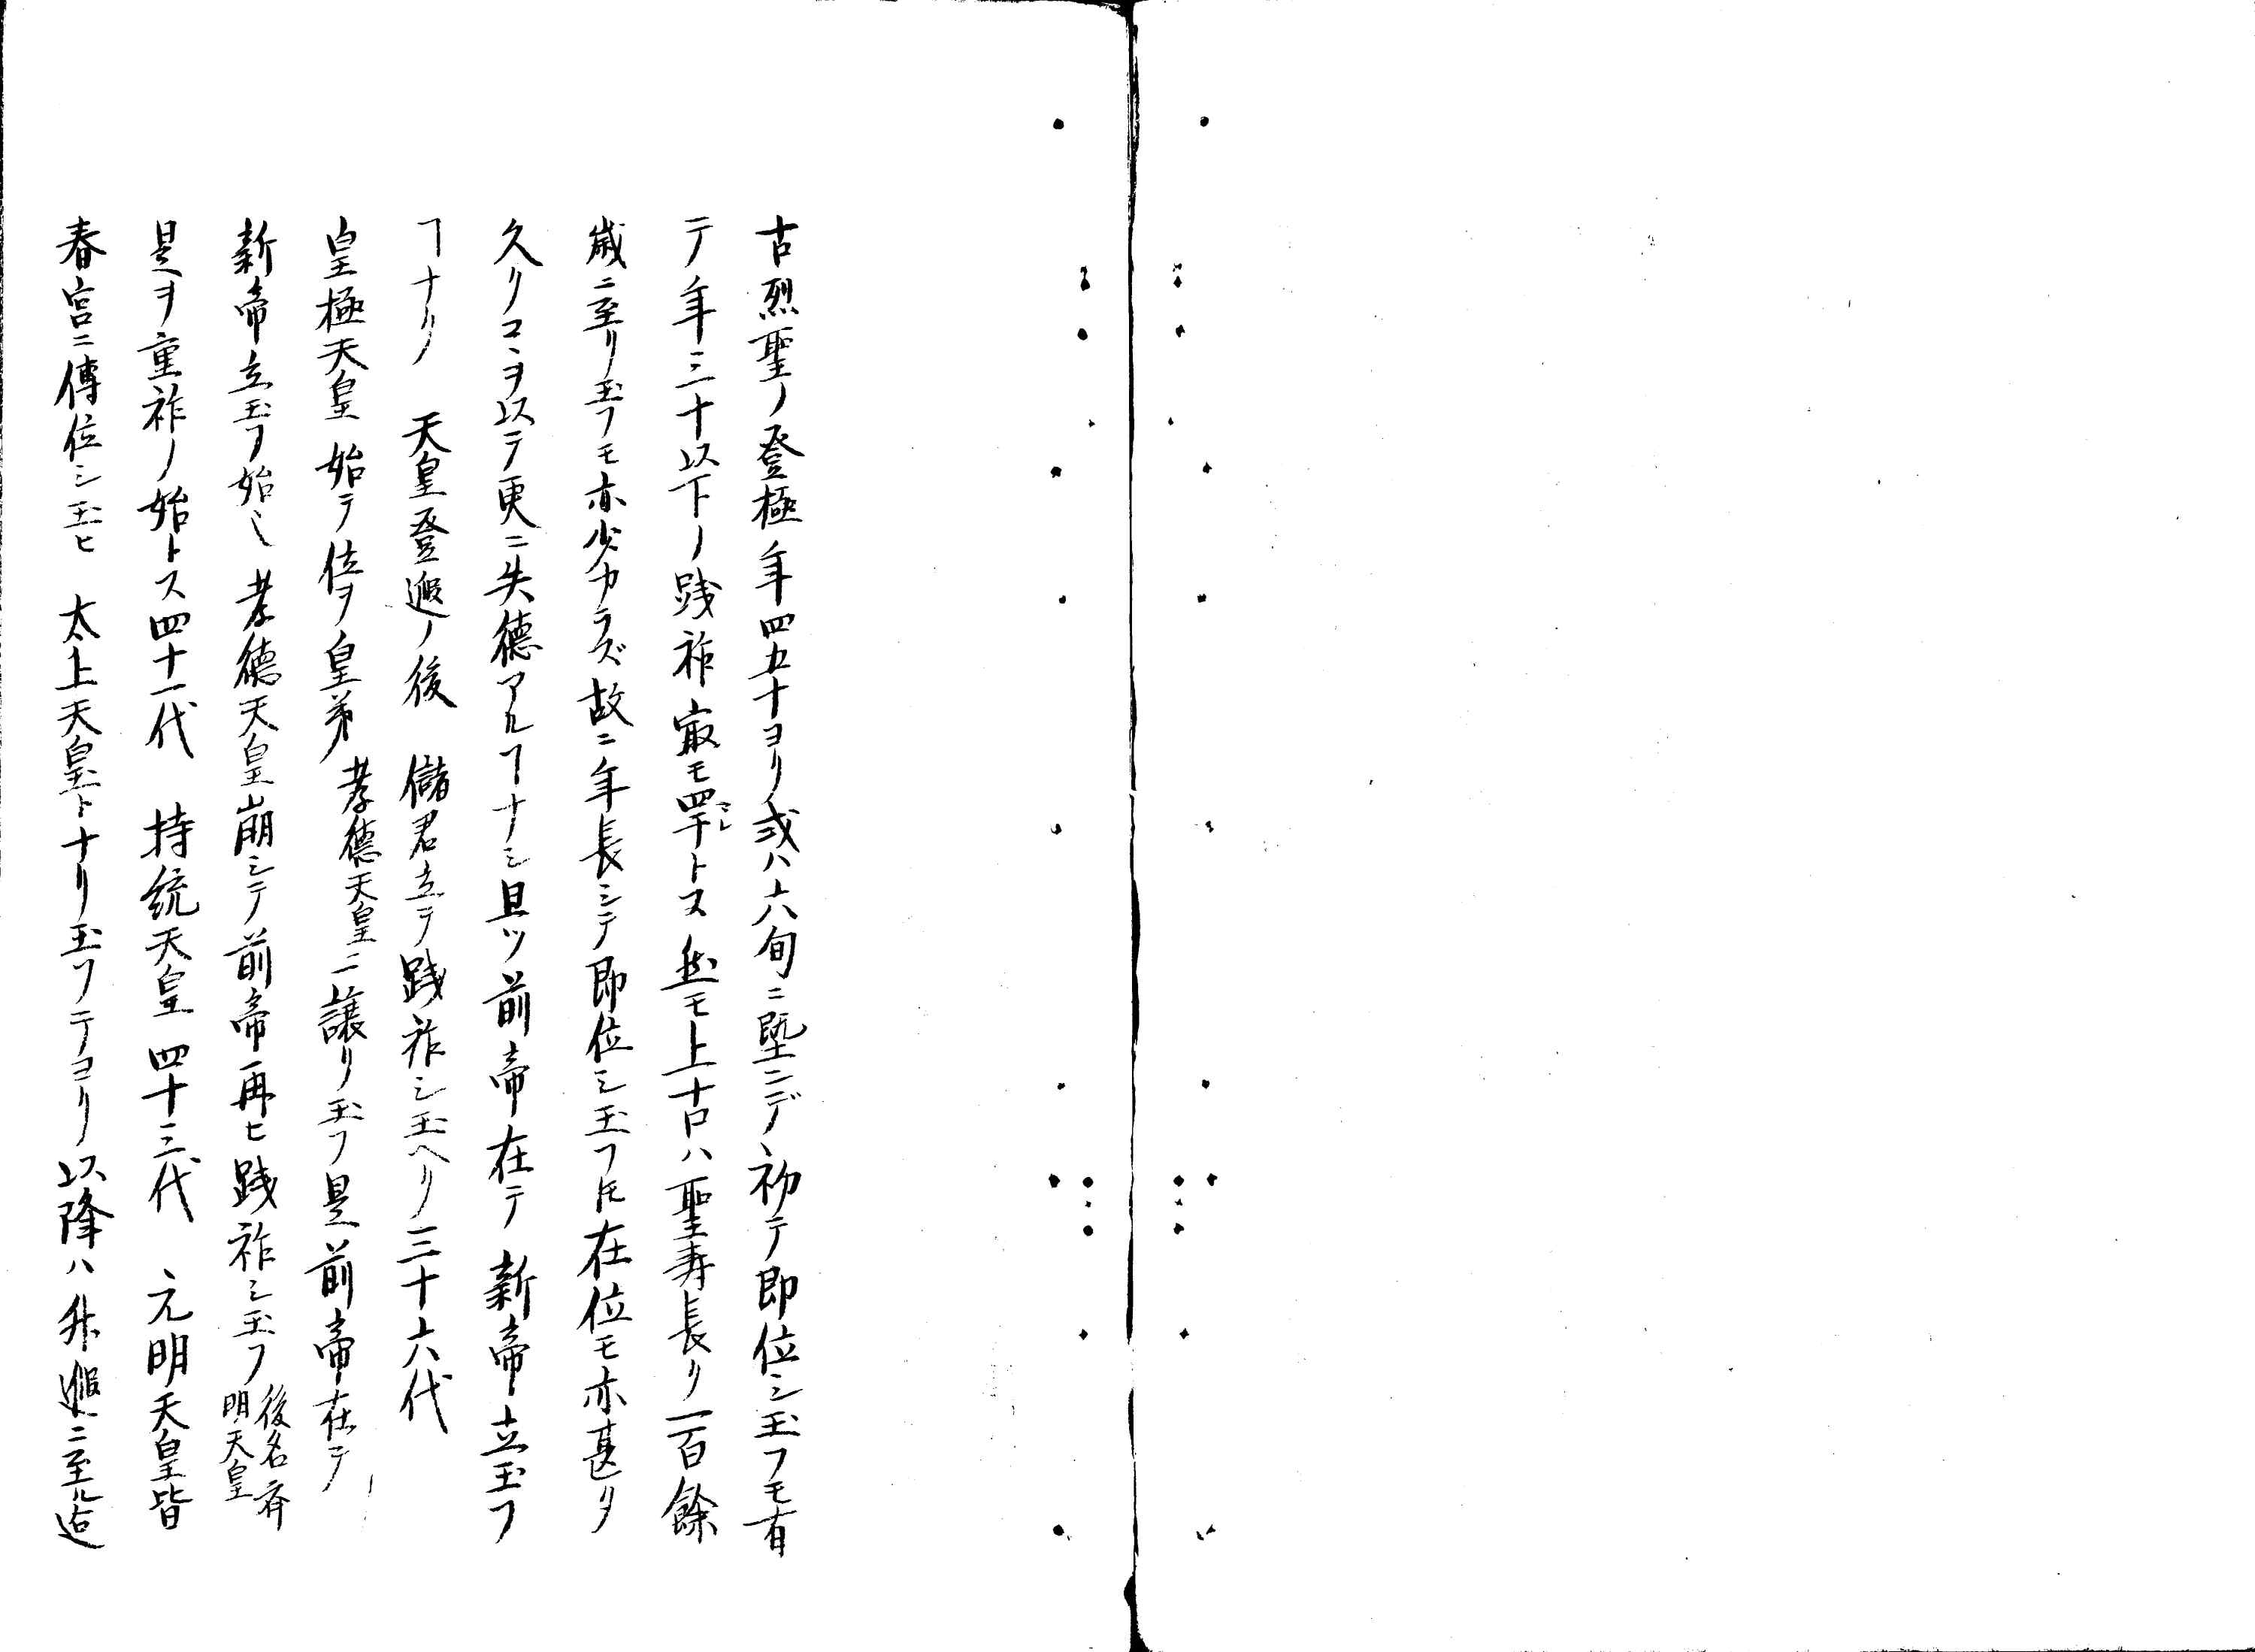 古烈聖ノ登極年四五十ヨリ或ハ六旬ニ塈ンデ初テ即位シ玉フモ有
テ年三十以下ノ践祚寂モ罕トス然モ上古ハ聖寿長ク一百餘
歳ニ至リ玉フモ亦少カラズ故ニ年長シテ即位シ玉フ𪜈在位モ亦甚タ
久クコヽヲ以テ更ニ失徳アルヿナシ且ツ前帝在テ新帝立玉フ
ヿナク 天皇登遐ノ後 儲君立テ践祚シ玉ヘリ三十六代
皇極天皇始テ位ヲ皇弟 孝徳天皇ニ譲リ玉フ是前帝在テ
新帝立玉フ始メ 孝徳天皇崩シテ前帝再ヒ践祚シ玉フ 後名斉明天皇
是ヲ重祚ノ始トス四十一代 持統天皇四十三代 元明天皇皆
春宮ニ傳位シ玉ヒ 太上天皇トナリ玉フテヨリ以降ハ升遐ニ至ル迠